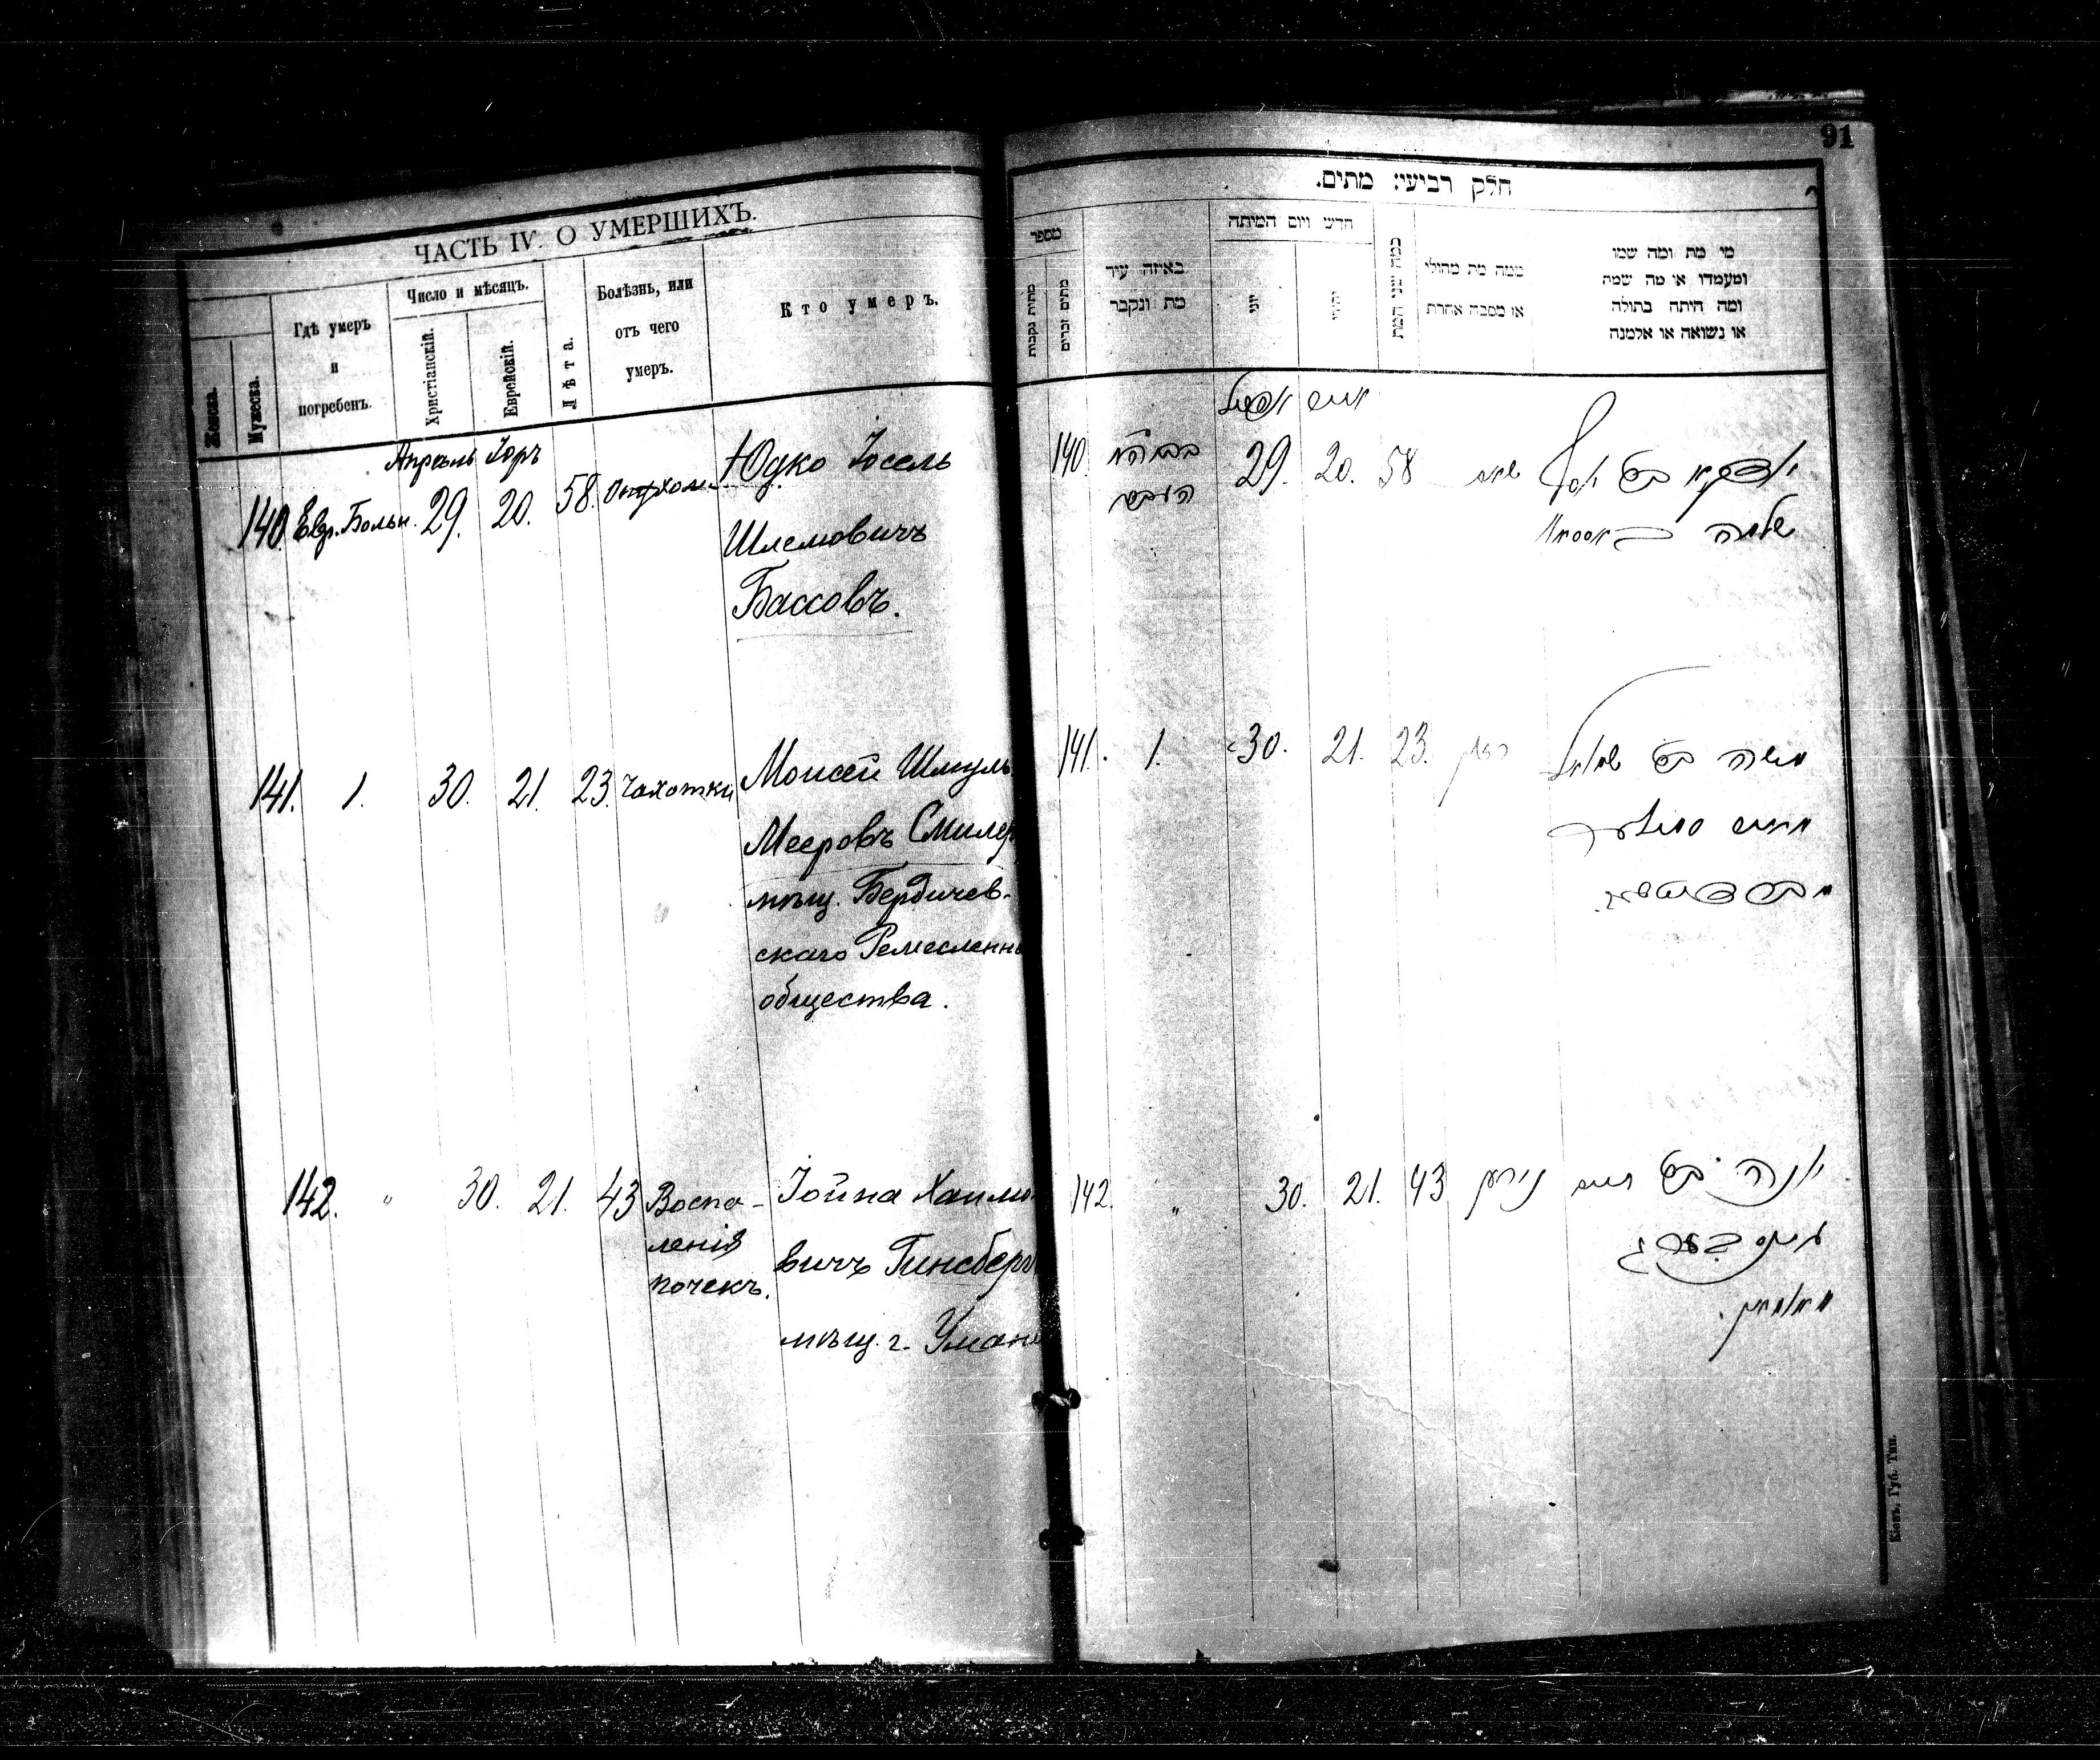 ЧАСТЬ IV. О УМЕРШИХЪ.
Женска.
Мужеска.
Гдѣ умеръ
и
погребенъ.
Число и мѣсяцъ.
Христіанскій.
Еврейскій.
Лѣта.
Болѣзнь, или
отъ чего
умеръ.
Кто умеръ.
Апрѣль Іоръ
140. Евр. Больн. 29. 20. 58. Юдко Іосель
Шлемовичъ
Бассовъ.
141. 1. 30. 21. 23. Чахотки Моисей Шмуль
Мееровъ Смиляр
мѣщ. Бердичев-
скаго Ремесленн
общества.
142. " 30. 21. 43 Воспа-
ленія
почекъ.
Іойна Хаимо
вичъ Гинсберг
мѣщ. г. Умани
91
חלק רביעי: מתים.
מספר
מתים נקבות
מתים זכרים
באיזה עיר
מת ונקבר
חדש ויום המיתה
יוני
כמה שני המת
ממה מת מחולי
או מסבה אחרת
מי מת ומה שמו
ומעמדו או מה שמה
ומה היתה בתולה
או נשואה או אלמנה
אפריל אייר
140 29. 20. 58
שלמה
141. 1. 30. 21. 23. משה שמואל
142. " 30. 21. 43 יונה חיים
גינזבערג
מאומין.
Кіевъ, Губ. Тип.